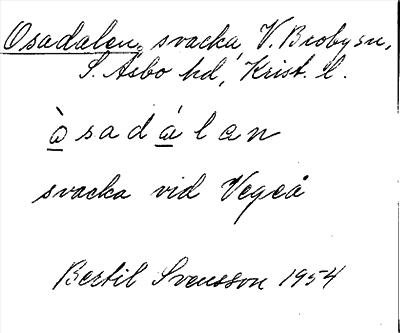 Osadalen, svacka, V. Broby sn,
S. Åsbo hd, Krist. l.
òsadálen
svacka vid Vegeå
Bertil Svensson 1954